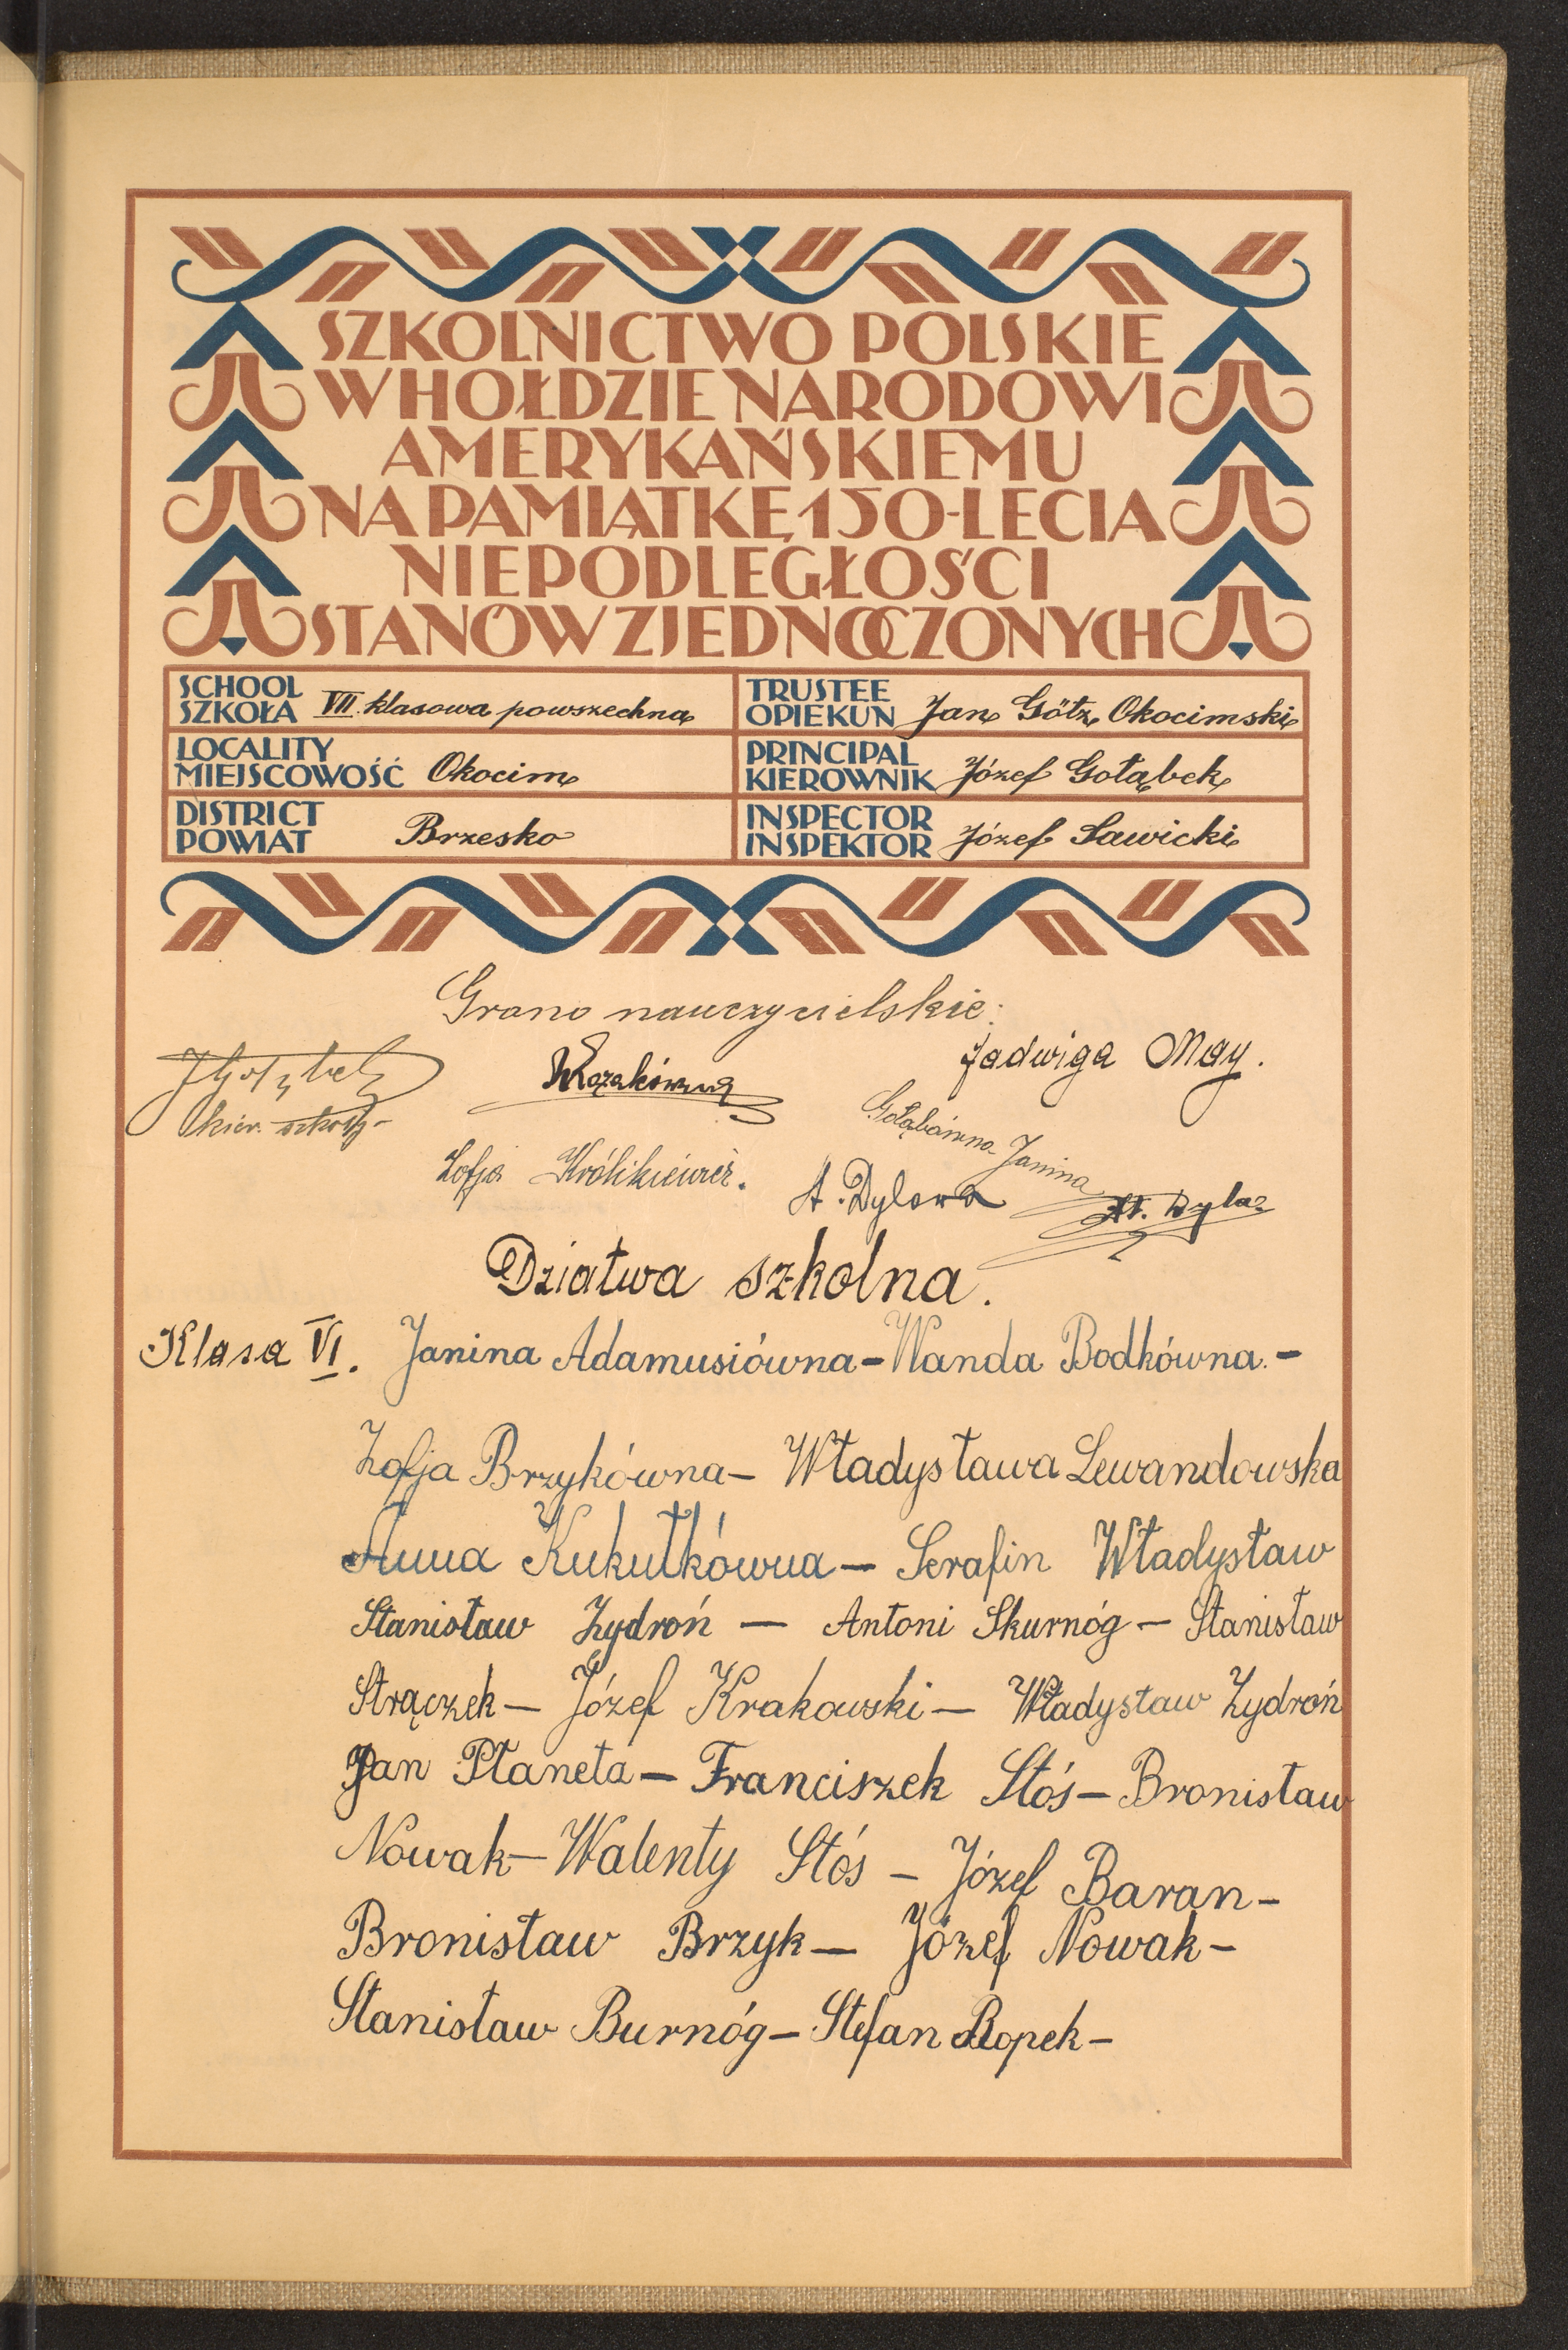 SZKOLNICTWO POLSKIE
W HOŁDZIE NARODOWI
AMERYKAŃSKIEMU
NA PAMIĄTKĘ 150-LECIA
NIEPODLEGŁOŚCI
STANÓW ZJEDNOCZONYCH
SCHOOL
SZKOŁA VII. klasowa powszechna
TRUSTEE
OPIEKUN Jan Götz Okocimski
LOCALITY
MIEJSCOWOŚĆ Okocim
PRINCIPAL
KIEROWNIK Józef Gołąbek
DISTRICT
POWIAT Brzesko
INSPECTOR
INSPEKTOR Józef Sawicki
Grono nauczycielskie:
JGołąbek
kier. szkoły
Jadwiga May.
Gołąbówna Janina
Zofja Królikiewicz.
A. Dylowa
St. Dyla
Dziatwa szkolna.
Klasa VI. Janina Adamusiówna - Wanda Bodkówna. -
Zofja Brzykówna - Władysława Lewandowska
Anna Kukułkówna - Serafin Władysław
Stanisław Żydroń - Antoni Skurnóg - Stanisław
Strączek - Józef Krakowski - Władysław Zydroń
Jan Płaneta - Franciszek Stós - Bronisław
Nowak - Walenty Stós - Józef Baran -
Bronisław Brzyk - Józef Nowak -
Stanisław Burnóg - Stefan Ropek -